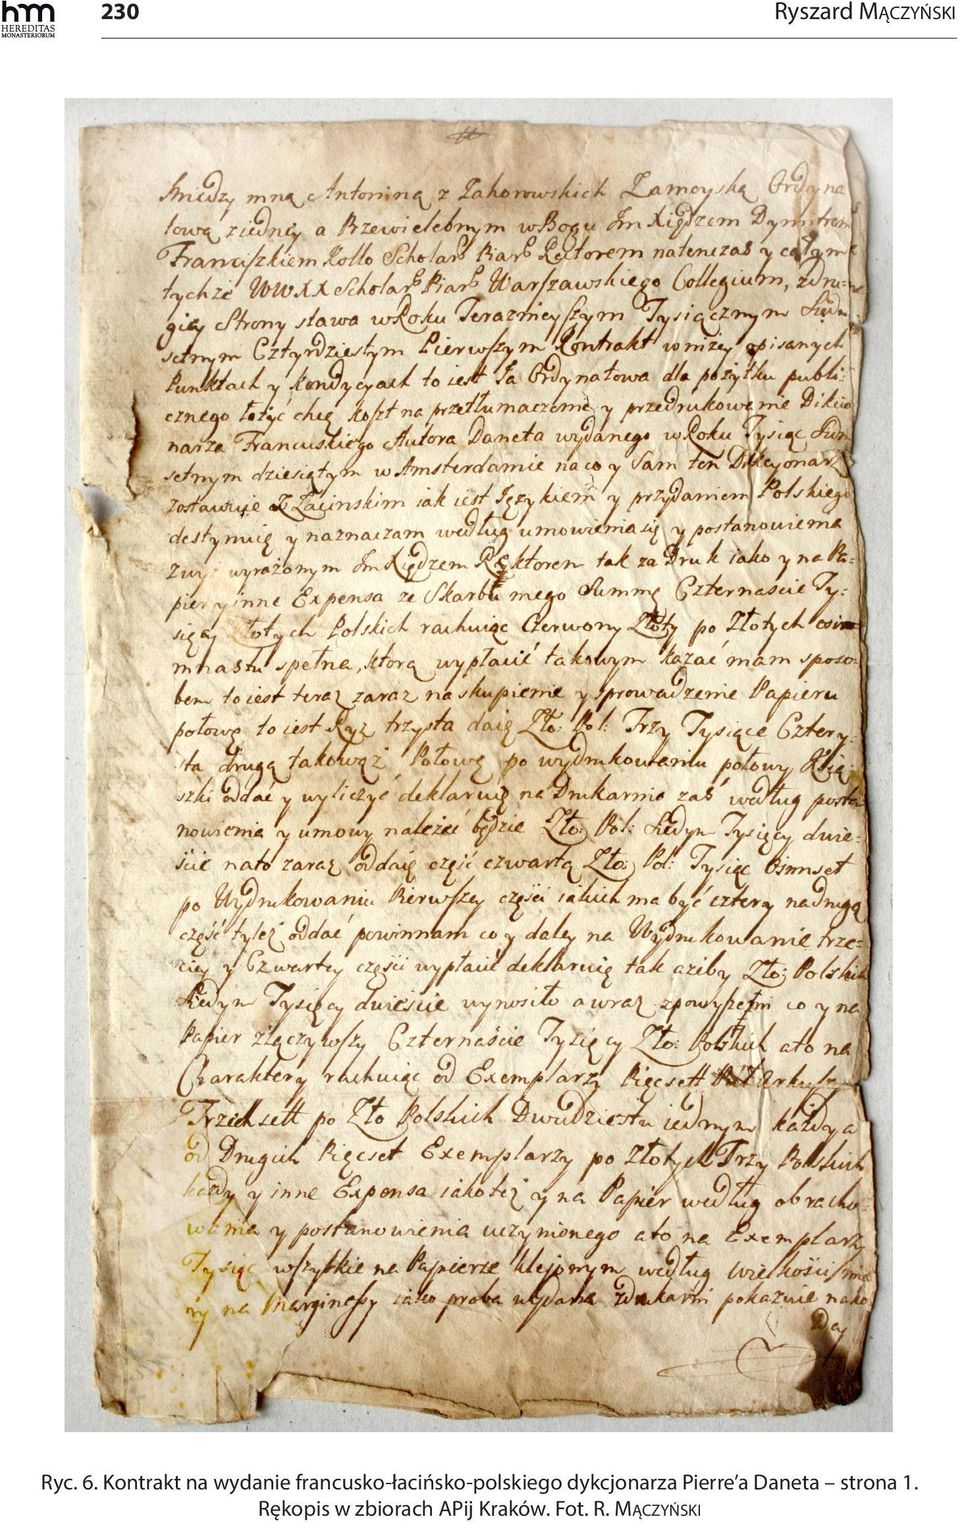 hm
HEREDITAS
MONASTERIORUM
230
Ryszard MĄCZYŃSKI
Między mną Antoniną z Zahorowskich Zamoyską Ordyna
tową z iedney a Przewielebnym w Bogu Jm Xiędzem Dymitrem
Franciszkiem Kollo Scholar Piar Rektorem natenczas y całym
tychże WWXX Scholar Piar Warszawskiego Collegium, zdru
giey Strony stawa w Roku Teraznieyszym Tysiącznym Siedm
setnym Cztyrdziestym Pierwszym Kontrakt w niżey opisanych
Punktach y Kondycyach to iest Ja Ordynatowa dla pożytku publi:
cznego łożyć chcę koszt na przetłumaczenie y przedrukowanie Dikcio
narza Francuskiego Autora Daneta wydanego w Roku Tysiąc Siedm
setnym dziesiątym w Amsterdamie na co y Sam ten Dikcyonarz
zostawuię Z Łacinskim iak iest Językiem y przydaniem Polskiego
destynuię y naznaczam według umowienia się y postanowienia
Zwyż wyrażonym Jm Xiędzem Rektorem tak za Druk iako y na Pa:
pier y inne Expensa ze Skarbu mego Summę Czternascie Ty:
sięcy Złotych Polskich rachuiąc Czerwony Złoty po Złotych osim
mnastu spełna, ktorą wypłacić takowym kazać mam sposo:
bem to iest teraz zaraz na skupienie y sprowadzenie Papieru
połowę to iest Ryz trzysta daię Zło: Pol: Trzy Tysiące Cztery:
sta drugą takowąż Połowę po wydrukowaniu połowy Xiąż
szki oddać y wyliczyć deklaruię na Drukarnią zaś według posta
nowienia y umowy należeć będzie Zło: Pol: Siedm Tysięcy dwie:
ście na to zaraz oddaię część czwartą Zło: Pol: Tysiąc Osmset
po Wydrukowaniu Pierwszey części iakich ma być cztery na drugą
część tyleż oddać powinnam co y daley na Wydrukowanie trze:
ciey y Czwartey części wypłacić deklaruię tak ażeby Zło: Polskich
Siedm Tysięcy dwieście wynosiło a wraz z powyższemi co y na
Papier złączywszy Czternaście Tysięcy Zło: Polskich a to na
Charaktery rachuiąc od Exemplarzy Pięcsett Arkuszy
Trzechsett po Zło Polskich Dwudziestu iednym każdy a
od Drugich Pięcset Exemplarzy po Złotych Trzy Polskich
każdy y inne Expensa iako też y na Papier według obracho:
wania y postanowienia uczynionego a to na Exemplarzy
Tysiąc wszytkie na Papierze kleionym według wielkości
ry na Marginessy iako proba wydana z drukarni pokazuie
Dey
Ryc. 6. Kontrakt na wydanie francusko-łacińsko-polskiego dykcjonarza Pierre’a Daneta – strona 1.
Rękopis w zbiorach APij Kraków. Fot. R. MĄCZYŃSKI